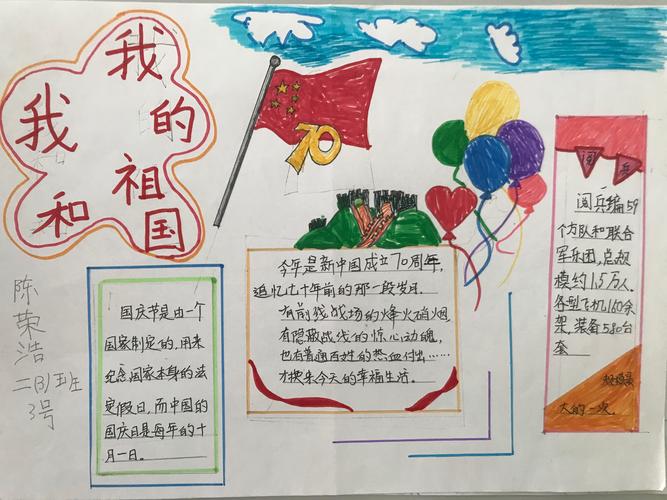 我和
我的
祖国
70
陈荣浩
二(3)班
3号
国庆节是由一个
国家制定的,用来
纪念国家本身的法
定假日,而中国的
国庆日是每年的十
月一日。
今年是新中国成立70周年,
追忆七十年前的那一段岁月,
有前线战场的烽火硝烟
有隐蔽战线的惊心动魄,
也有普通百姓的热血付出……
才换来今天的幸福生活。
阅兵
阅兵编59
个方队和联合
军乐团,总规
模约1.5万人、
各型飞机160余
架,装备580台
套
规模最
大的一次。